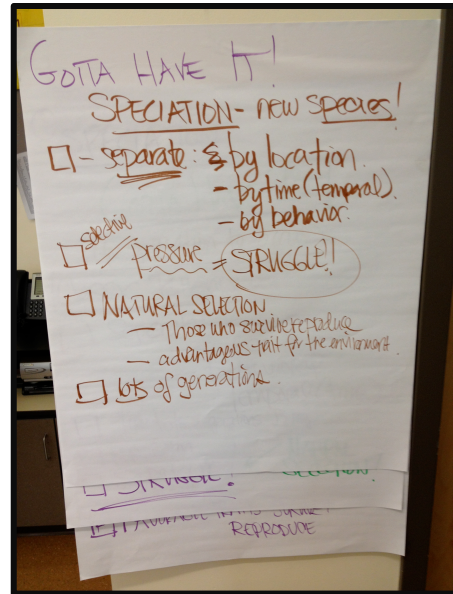 GOTTA HAVE IT!
SPECIATION- new species!
- separate: by location.
- by time (temporal).
- by behavior.
selective
pressure = STRUGGLE!
NATURAL SELECTION
- Those who survive reproduce
- advantageous trait for the environment.
lots of generations.
STRUGGLE!
REPRODUCE